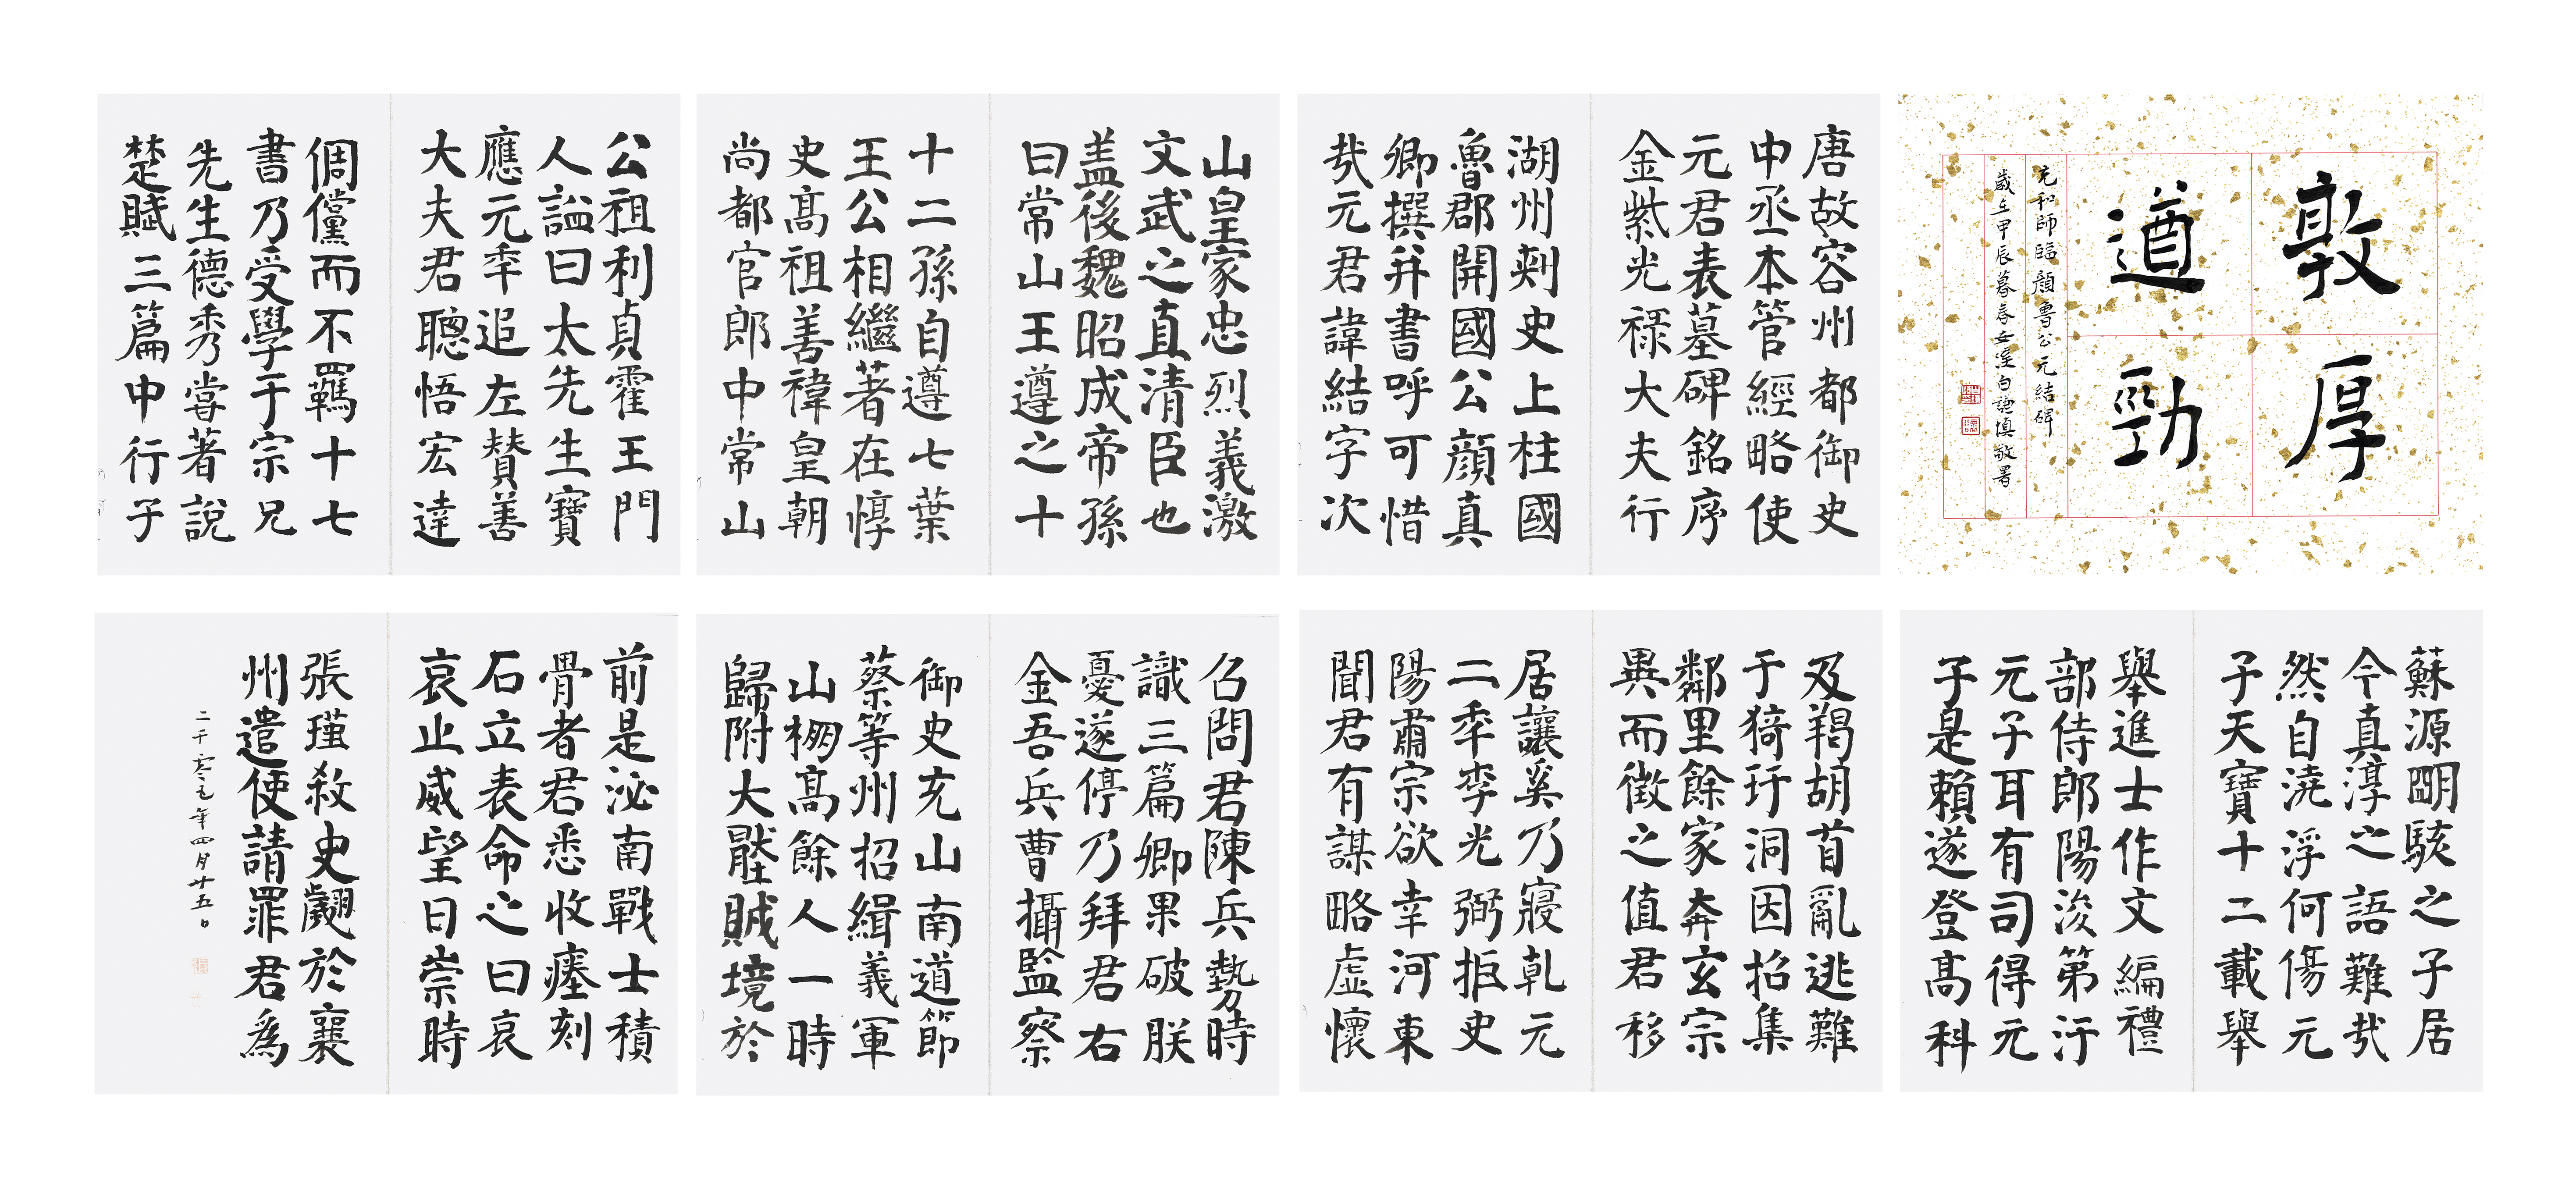 敦厚
遒勁
元和師臨顏魯公元結碑
歲在甲辰暮春女淫白謙慎敬署
唐故容州都御史
中丞本管經略使
元君表墓碑銘序
金紫光祿大夫行
湖州刾史上柱國
魯郡開國公顏真
卿撰并書呼可惜
㢤元君諱結字次
山皇家忠烈義激
文武之直清臣也
盖後魏昭成帝孫
曰常山王遵之十
十二孫自遵七葉
王公相繼著在惇
史髙祖善禕皇朝
尚都官郎中常山
公祖利貞霍王門
人謚曰太先生寶
應元秊追左賛善
大夫君聰悟宏達
倜儻而不羈十七
書乃受學于宗兄
先生德秀嘗著說
楚賦三篇中行子
蘇源朙駭之子居
今真淳之語難㢤
然自澆浮何傷元
子天寶十二載舉
舉進士作文編禮
部侍郎陽浚第汙
元子耳有司得元
子是賴遂登髙科
及羯胡首亂逃難
于猗玗洞因招集
鄰里餘家奔玄宗
異而徵之值君移
居讓奚乃寢乹元
二秊李光弼拒史
陽肅宗欲幸河東
聞君有謀略虛懷
召問君陳兵勢時
識三篇卿果破朕
憂遂停乃拜君右
金吾兵曹攝監察
御史充山南道節
蔡等州招緝義軍
山棚髙餘人一時
歸附大壓賊境於
前是泌南戰士積
骨者君悉收瘞刻
石立表命之曰哀
哀止威望日崇時
張瑾殺史翽於襄
州遣使請罪君爲
二千零元年四月廿五日